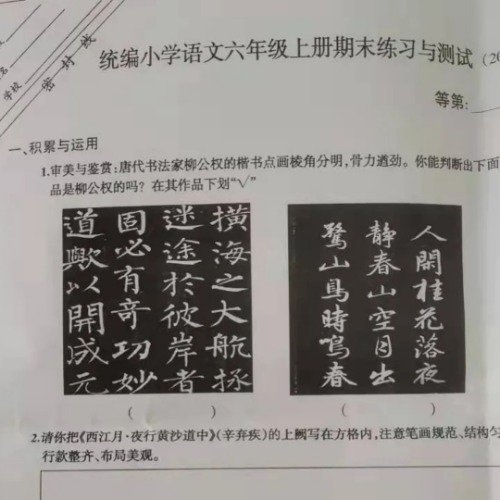 密封线
学校
名
统编小学语文六年级上册期末练习与测试(20
等第:
一、积累与运用
1.审美与鉴赏:唐代书法家柳公权的楷书点画棱角分明,骨力遒劲。你能判断出下面
品是柳公权的吗?在其作品下划"√"
橫海之大航拯
迷途於彼岸者
固必有奇功妙
道歟以開成元
人閑桂花落夜
静春山空月出
驚山鳥時鳴春
( )
( )
( )
2.请你把《西江月·夜行黄沙道中》(辛弃疾)的上阕写在方格内,注意笔画规范、结构匀
行款整齐、布局美观。